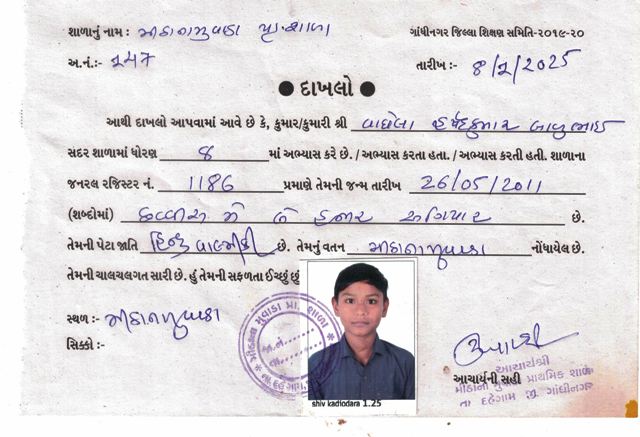 શાળાનું નામ : મીઠાનામુવાડા પ્રા.શાળા ગાંધીનગર જિલ્લા શિક્ષણ સમિતિ-૨૦૧૯-૨૦
અ.નં.:- 247 તારીખ :- 8/2/2025
● દાખલો ●
આથી દાખલો આપવામાં આવે છે કે, કુમાર/કુમારી શ્રી વાઘેલા હર્ષદકુમાર બાબુભાઈ
સદર શાળામાં ધોરણ 8 માં અભ્યાસ કરે છે. / અભ્યાસ કરતા હતા. / અભ્યાસ કરતી હતી. શાળાના
જનરલ રજિસ્ટર નં. 1186 પ્રમાણે તેમની જન્મ તારીખ 26/05/2011
(શબ્દોમાં) છવ્વીસ મે બે હજાર અગિયાર છે.
તેમની પેટા જાતિ હિન્દુ વાલ્મીકી છે. તેમનું વતન મીઠાનામુવાડા નોંધાયેલ છે.
તેમની ચાલચલગત સારી છે. હું તેમની સફળતા ઈચ્છું છું
સ્થળ :- મીઠાનામુવાડા
સિક્કો :-
મીઠાના મુવાડા પ્રા. શાળા
shiv kadiodara 1.25
આચાર્યની સહી
આચાર્યશ્રી
મીઠાના મુવાડા પ્રાથમિક શાળા
તા દહેગામ જી. ગાંધીનગર